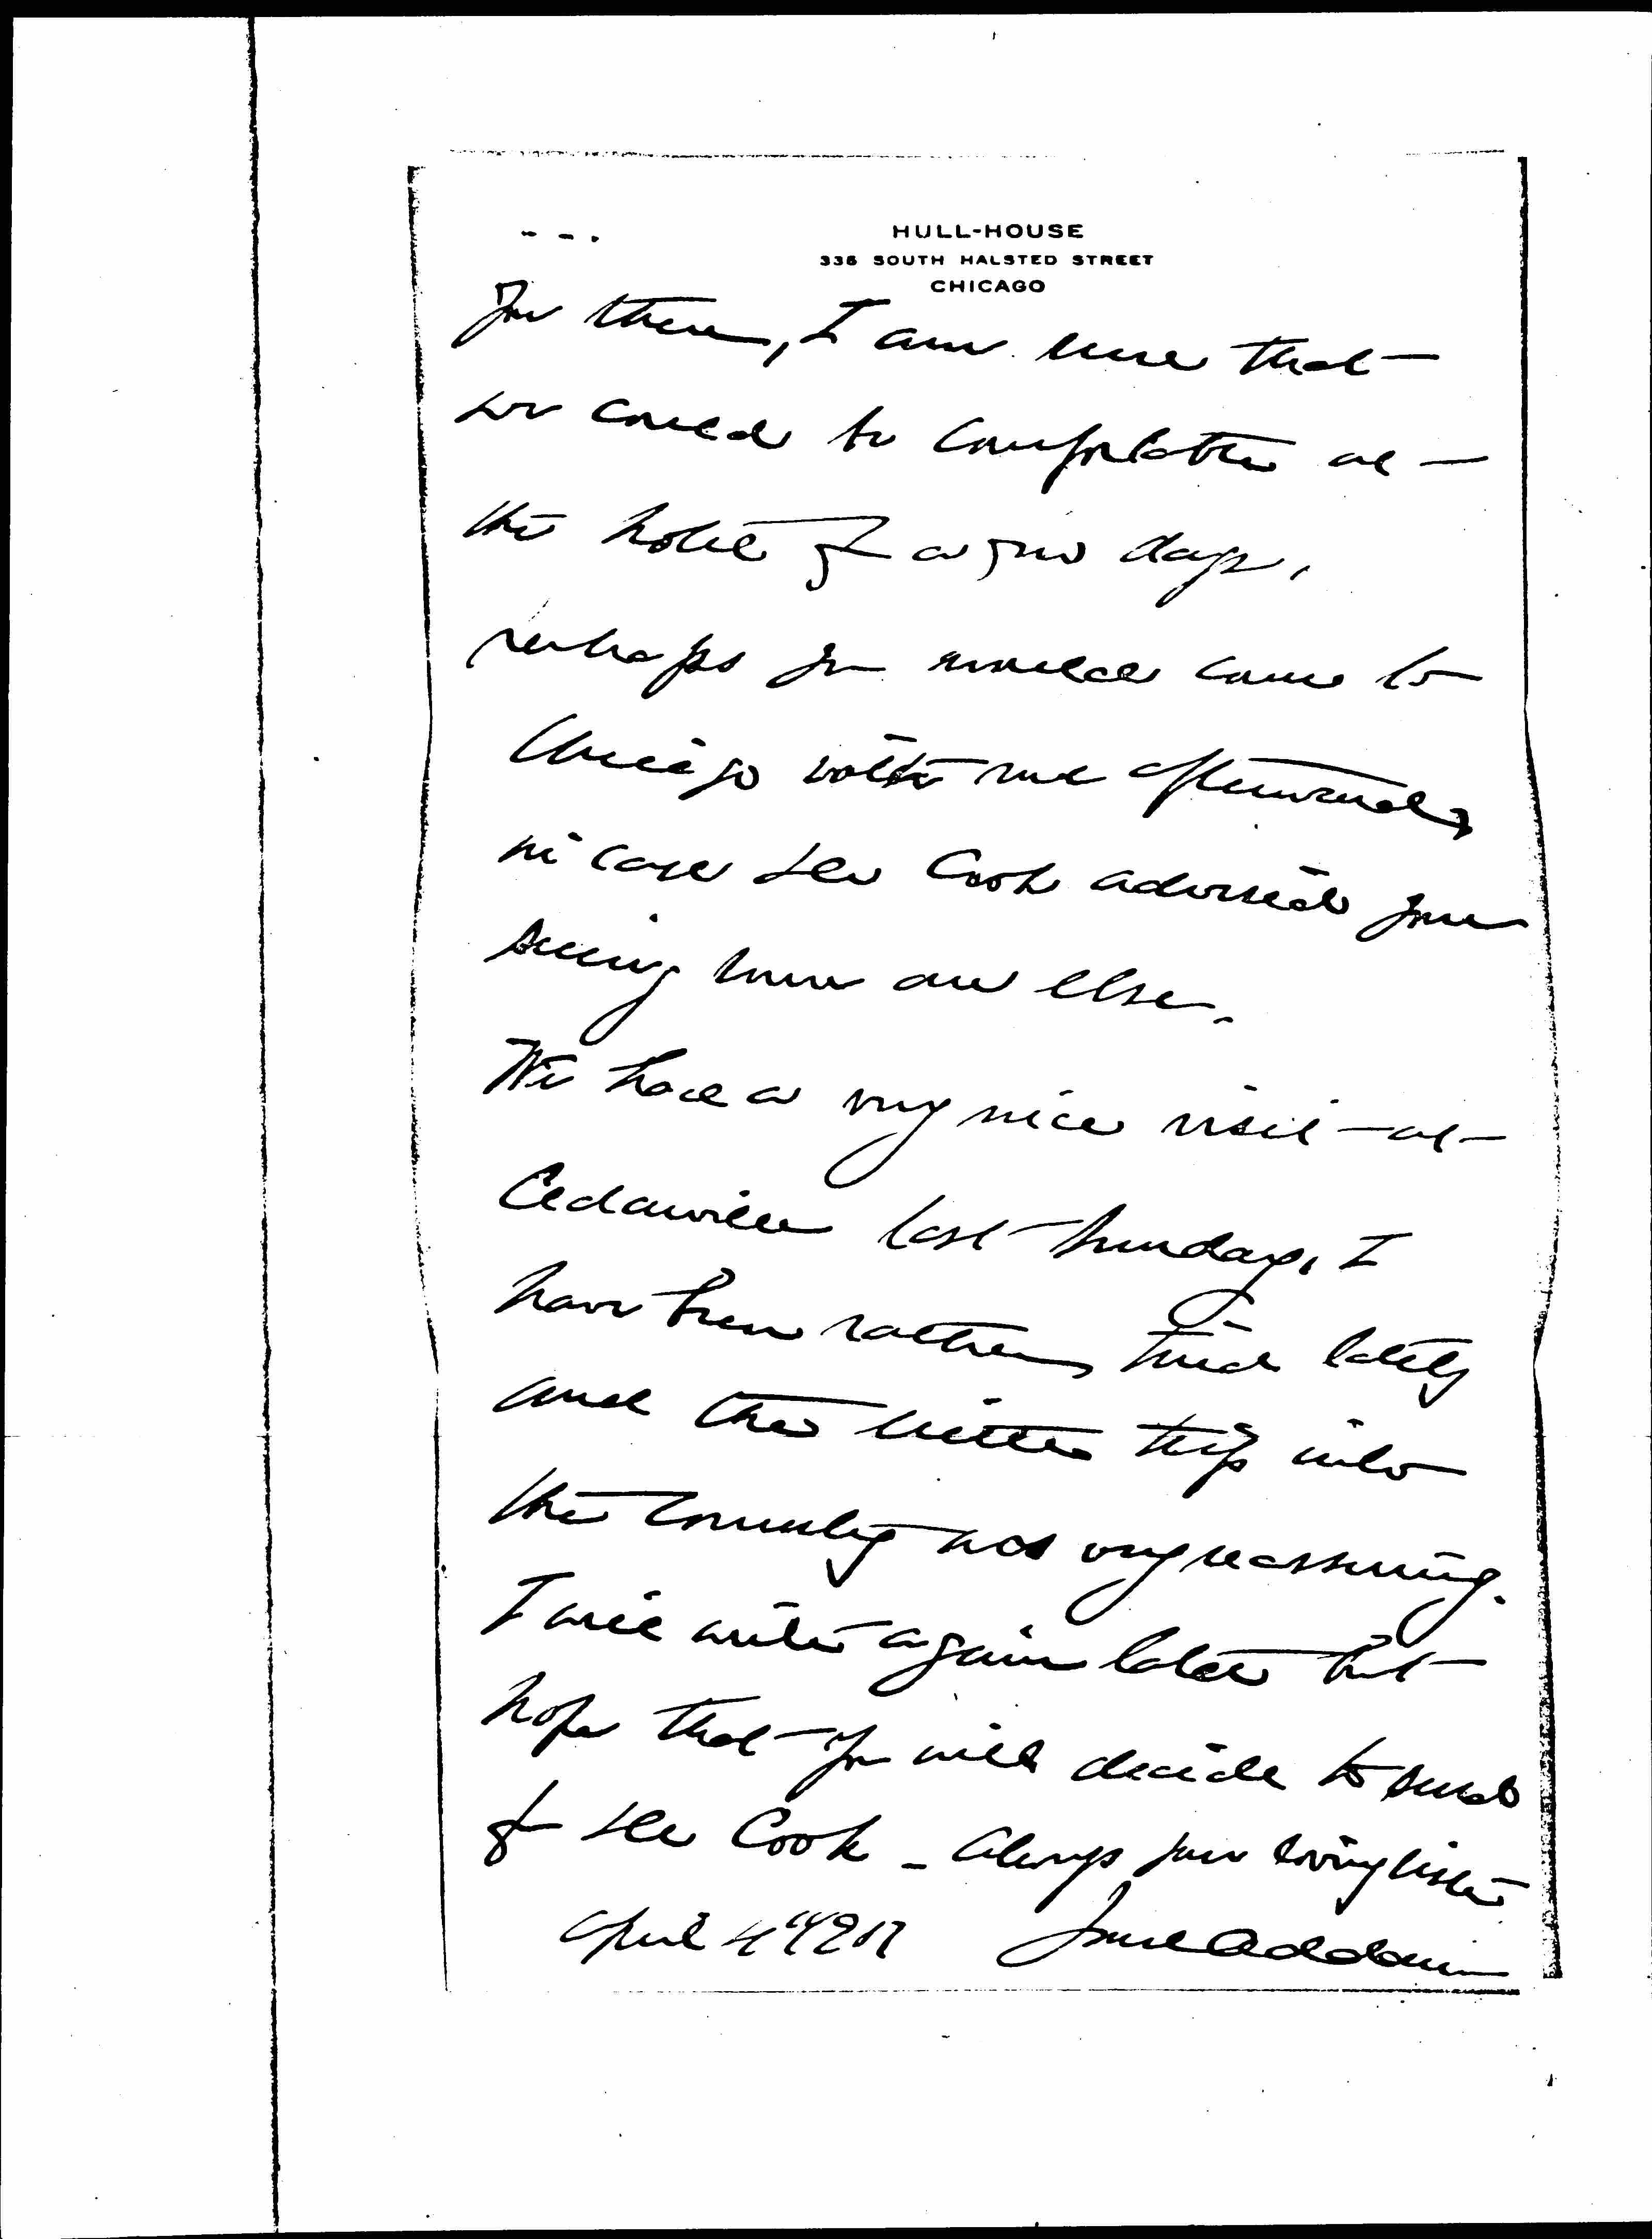 HULL-HOUSE
336 SOUTH HALSTED STREET
CHICAGO
you there, I am sure that
we could be comfortable at
the hotel for a few days,
perhaps you would come to
Chicago with me afterwards,
in case Dr Cook advised your
seeing some one else.
We had a very nice visit at
Cedarville last Sunday, I
have been rather tired lately
and the little trip into
the country was very reassuring.
I will write again later but
hope that you will decide to send
for Dr Cook - Always your loving sister
April 4"
Jane Addams